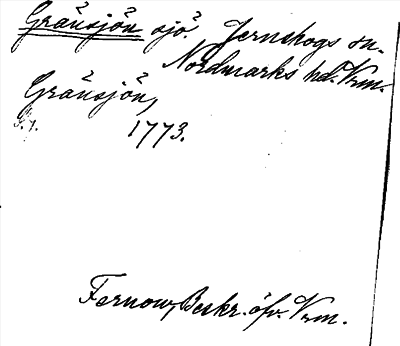 Gränsjön sjö. Jernskogs sn.
Nordmarks hd. Vrm.
Gränsjön,
S. 7. 1773.
Fernow, Beskr. öfv. Vrm.